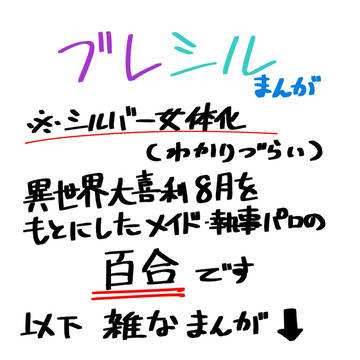 ブレシル
まんが
※シルバー女体化
(わかりづらい)
異世界大喜利8月を
もとにしたメイド・執事パロの
百合です
以下 雑なまんが⬇